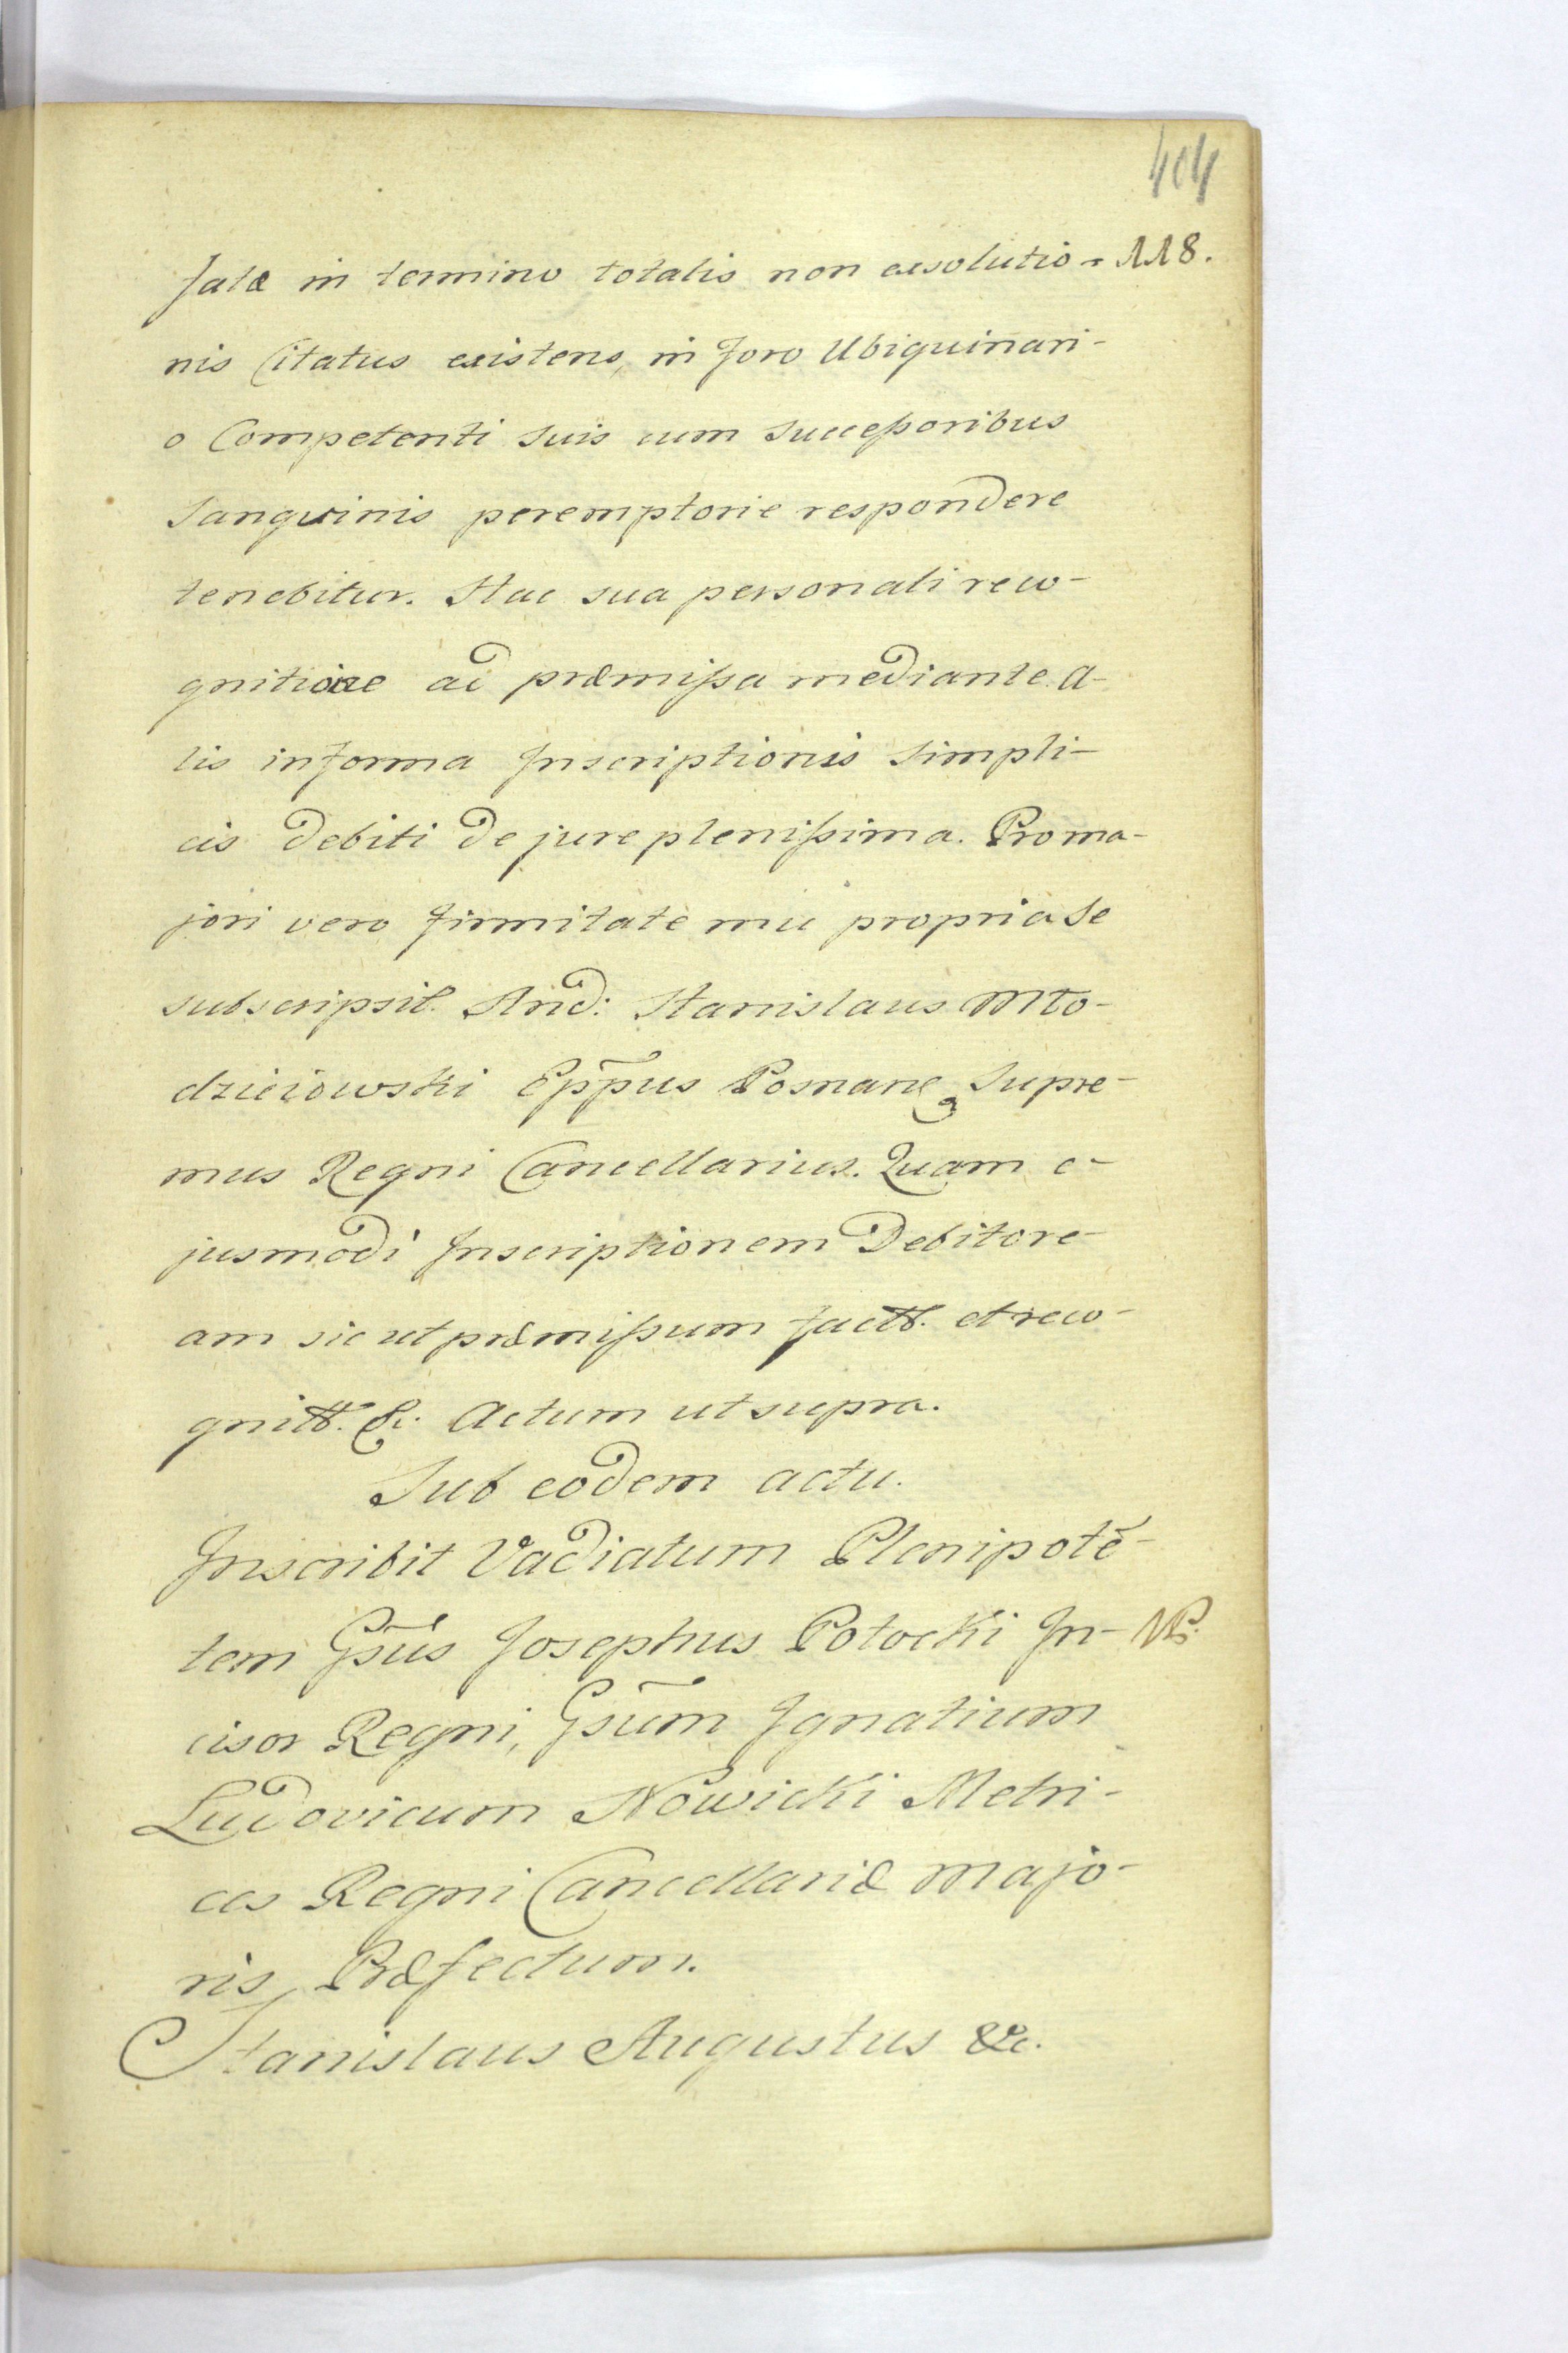 404
fatæ in termino totalis non exsolutio- 118.
nis Citatus existens, in foro Ubiquinari-
o Competenti suis cum successoribus
sanguinis peremptorie respondere
tenebitur. Hac sua personali reco-
gnitione ad præmissa mediante. A-
lis in forma Inscriptionis simpli-
cis debiti de jure plenissima. Pro ma-
jori vero firmitate mu propria se
subscripsit. And: Stanislaus Mło-
dzieiowski Eppus Posnans Supre-
mus Regni Cancellarius. Quam e-
jusmodi Inscriptionem Debitore-
am sic ut præmissum factt. et reco-
gnitt. &c. Actum ut supra.
Sub eodem actu.
Inscribit Vadiatum Plenipotē-
tem Gsūs Josephus Potocki In- NB.
cisor Regni, Gsūm Ignatium
Ludovicum Nowicki Metri-
ces Regni Cancellariæ Majo-
ris Præfectum.
Stanislaus Augustus &c.